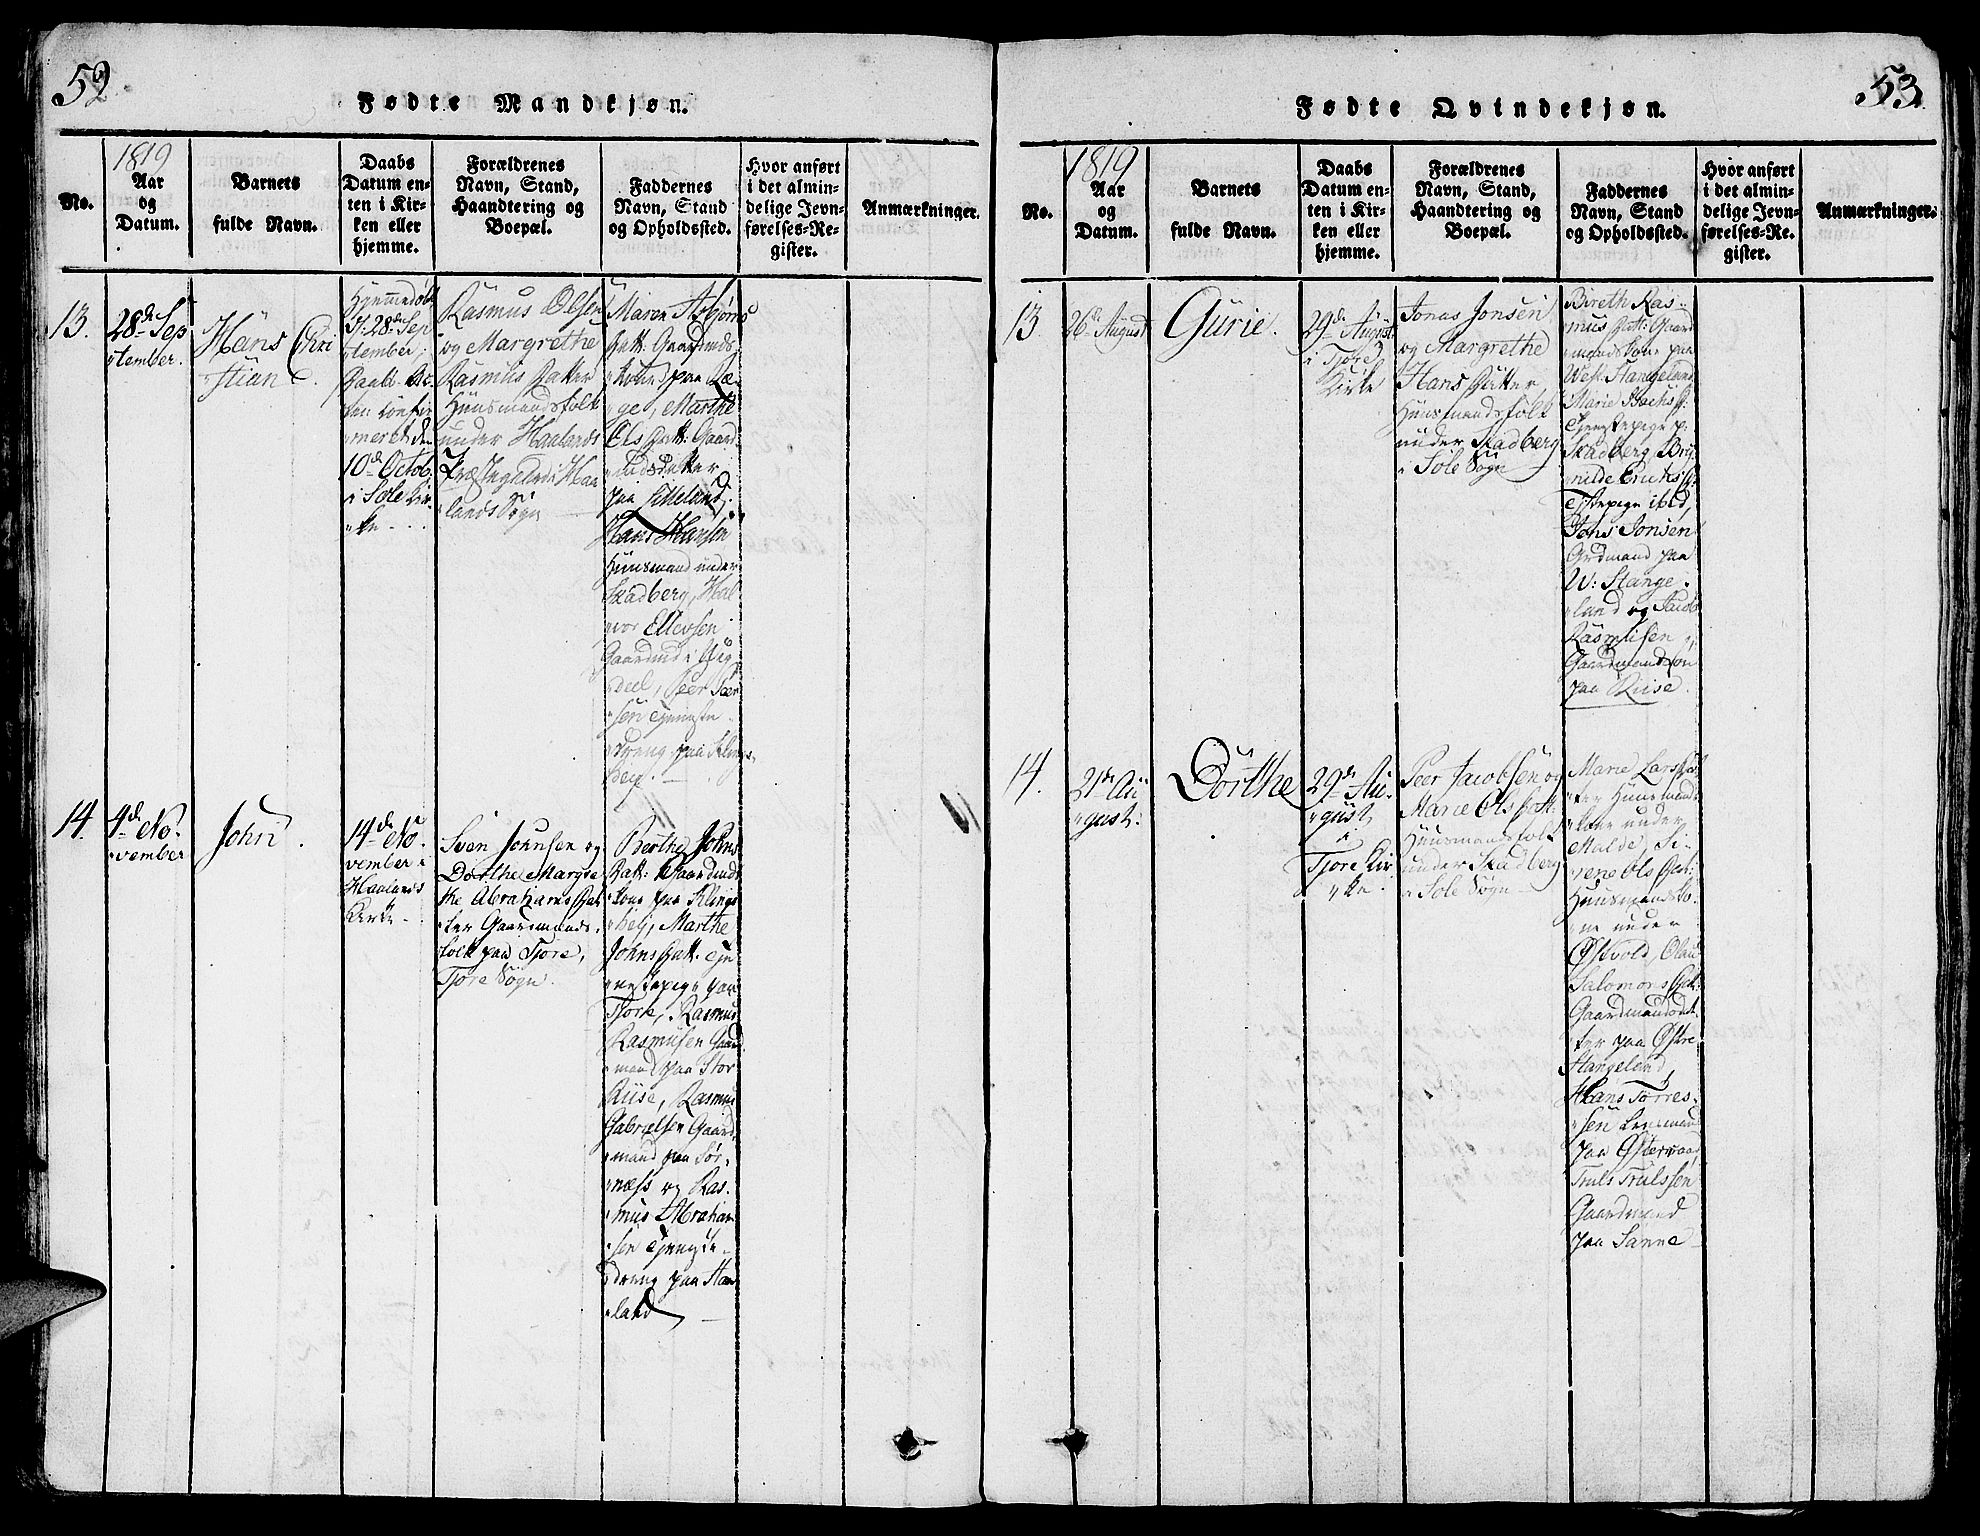 52
Fødte Mandkjøn.
No.
1819
Aar
og
Datum.
Barnets
fulde Navn.
Daabs
Datum en-
ten i Kir-
ken eller
hjemme.
Forældrenes
Navn, Stand,
Haandtering og
Boepæl.
Faddernes
Navn, Stand
og Opholdssted.
Hvor anført
i det almin-
delige Jevn-
førelses-Re-
gister.
Anmærkninger.
13.
28de Sep
tember.
Hans Chri
stian
Hjemmedøbt
28de Sep
tember,
Daab.
confir
meret den
10de Octob.
i Sole Kir
ke
Rasmus Olsen
og Margrethe
Rasmus Datter
Huusmandsfolk
under Haalands
Præstegaard i Haa
lands Sogn
Maren Asbjørns
Datt: Gaardmds
kone paa Ræ
ge, Marthe
Ols Datt: Gaard
mdsdatter
paa Lilleland,
Hans Hansen
Huusmand under
Skadberg, Hal
vor Ellevsen
Gaardmd i
Peer Peer
sen Tjeneste
dreng paa Klings
berg.
14.
4de No
vember
John.
14de No
vember i
Haalands
Kirke
Sven Johnsen og
Dorthe Margre
the Abrahams Dat
ter Gaardmands
folk paa Tjore,
Tjore Sogn.
Berthe Johns
Datt: Gaardmds
kone paa Klings
berg, Marthe
Johns Datt: Tje
nestepige paa
Tjore, Rasmus
Rasmusen Gaard
mand paa Stor
Riise, Rasmus
Gabrielsen Gaard
mand paa Sør
næss og Ras
mus Abraham
sen Tjeneste
dreng paa Haa
land
53
Fødte Qvindekjøn.
No.
1819
Aar
og
Datum.
Barnets
fulde Navn.
Daabs
Datum en-
ten i Kir-
ken eller
hjemme.
Forældrenes
Navn, Stand,
Haandtering og
Boepæl.
Faddernes
Navn, Stand
og Opholdssted.
Hvor anført
i det almin-
delige Jevn-
førelses-Re-
gister.
Anmærkninger.
13.
26de August
Gurie.
29de August
i Tjore
Kirke
Jonas Jonsen
og Margrethe
Hans Datter,
Huusmandsfolk
under Skadberg
i Sole Sogn
Bireth Ras
mus Datt: Gaard
mandskone paa
West Stangeland
Marie Bachs D:
Tjenstepige p.
Skadberg, Bry
nilde Erichs D:
Tjstepige ibid,
Jons Jonsen
Grdmand paa
W: Stange
land og Jacob
Rasmusen
Gaardmandssøn
paa Riise.
14.
21de Au
gust:
Dorthe
29de Au
gust
i
Tjore Kir
ke.
Peer Jacobsen og
Marie Ols Datt:
Huusmandsfolk
under Skadberg
i Sole Sogn
Marie Lars Dat
ter Huusmands
kone under
Malde, Si
rene Ols Datt:
Huusmandsko
ne under
Østvold, Olau
Salomons Dat:
Gaardmandsdat
ter paa Østre
Stangeland,
Hans Torres
sen Lensmand
paa Østeraad,
Truls Trulssen
Gaardmand
paa Sanne